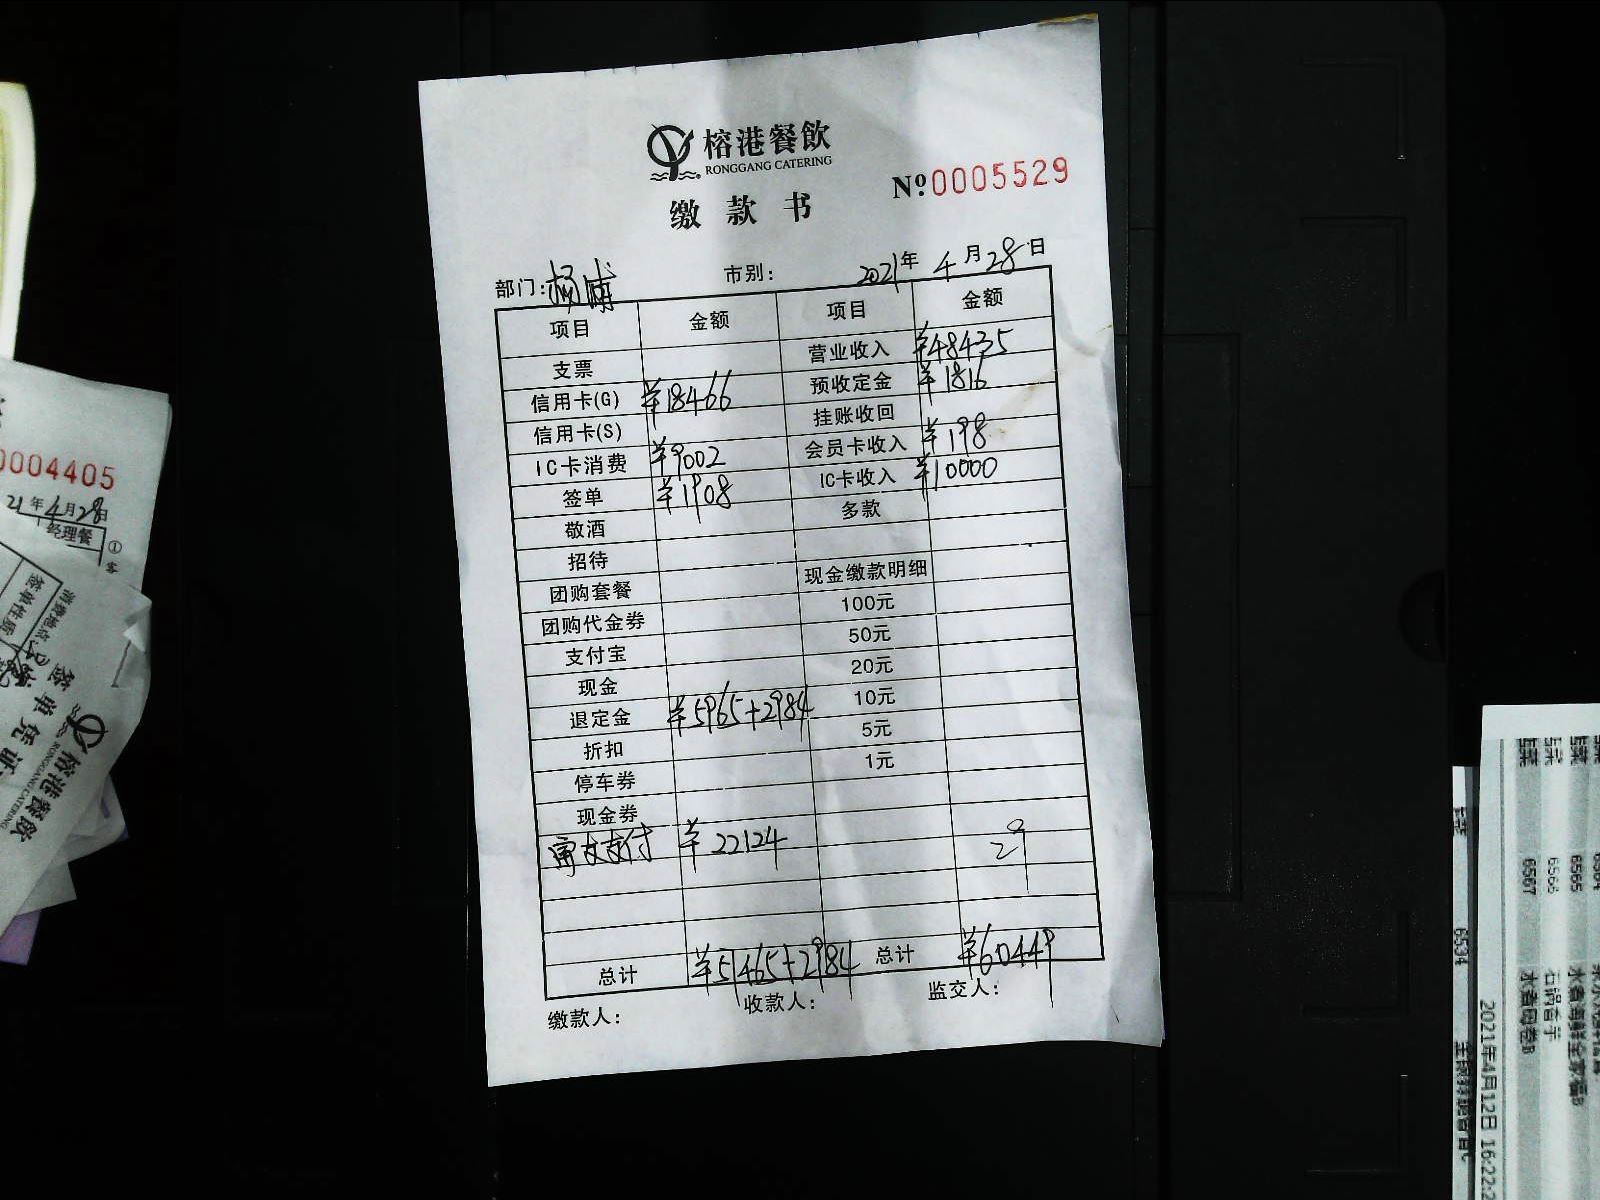 榕港餐飲
RONGGANG CATERING
缴款书
Nº0005529
部门:杨浦 市别: 2021年4月28日
项目 金额 项目 金额
支票 营业收入 ¥48435
信用卡(G) ¥18466 预收定金 ¥1816
信用卡(S) 挂账收回
IC卡消费 ¥9002 会员卡收入 ¥198
签单 ¥1908 IC卡收入 ¥10000
敬酒 多款
招待
团购套餐 现金缴款明细
团购代金券 100元
支付宝 50元
现金 20元
退定金 ¥5965+2984 10元
折扣 5元
停车券 1元
现金券
支付 ¥22124 29
总计 ¥51465+2984 总计 ¥60449
缴款人: 收款人: 监交人:
0004405
21年4月28日
经理餐
①
客
签单性质
消费地点
签单凭证
榕港餐飲
RONGGANG CATERING
6567
6566
6565
石锅香芋
6534
2021年4月12日 16:22: